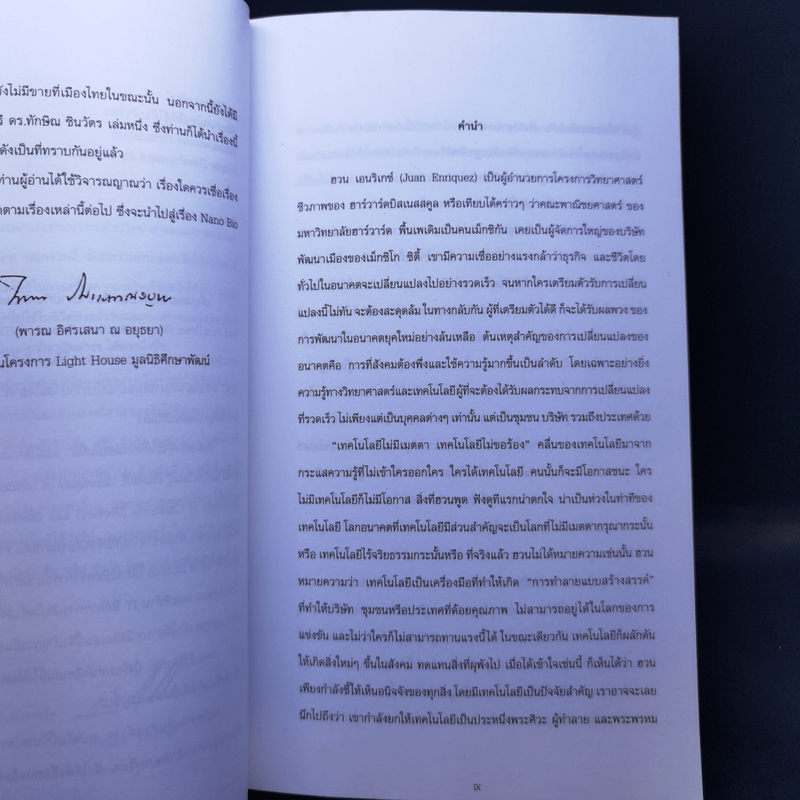 ยังไม่มีขายที่เมืองไทยในขณะนั้น นอกจากนี้ยังได้มี
ดร.ทักษิณ ชินวัตร เล่มหนึ่ง ซึ่งท่านก็ได้นำเรื่องนี้
ดังเป็นที่ทราบกันอยู่แล้ว
ท่านผู้อ่านได้ใช้วิจารณญาณว่า เรื่องใดควรเชื่อเรื่อง
ตามเรื่องเหล่านี้ต่อไป ซึ่งจะนำไปสู่เรื่อง Nano Bio
(พารณ อิศรเสนา ณ อยุธยา)
โครงการ Light House มูลนิธิศึกษาพัฒน์
คำนำ
ฮวน เอนริเกซ์ (Juan Enriquez) เป็นผู้อำนวยการโครงการวิทยาศาสตร์
ชีวภาพของ ฮาร์วาร์ดบิสเนสสคูล หรือเทียบได้คร่าวๆ ว่าคณะพาณิชยศาสตร์ ของ
มหาวิทยาลัยฮาร์วาร์ด พื้นเพเดิมเป็นคนเม็กซิกัน เคยเป็นผู้จัดการใหญ่ของบริษัท
พัฒนาเมืองของเม็กซิโก ซิตี้ เขามีความเชื่ออย่างแรงกล้าว่าธุรกิจ และชีวิตโดย
ทั่วไปในอนาคตจะเปลี่ยนแปลงไปอย่างรวดเร็ว จนหากใครเตรียมตัวรับการเปลี่ยน
แปลงนี้ไม่ทัน จะต้องสะดุดล้ม ในทางกลับกัน ผู้ที่เตรียมตัวได้ดี ก็จะได้รับผลพวง ของ
การพัฒนาในอนาคตยุคใหม่อย่างล้นเหลือ ต้นเหตุสำคัญของการเปลี่ยนแปลงของ
อนาคตคือ การที่สังคมต้องพึ่งและใช้ความรู้มากขึ้นเป็นลำดับ โดยเฉพาะอย่างยิ่ง
ความรู้ทางวิทยาศาสตร์และเทคโนโลยีผู้ที่จะต้องได้รับผลกระทบจากการเปลี่ยนแปลง
ที่รวดเร็ว ไม่เพียงแต่เป็นบุคคลต่างๆ เท่านั้น แต่เป็นชุมชน บริษัท รวมถึงประเทศด้วย
“เทคโนโลยีไม่มีเมตตา เทคโนโลยีไม่ขอร้อง” คลื่นของเทคโนโลยีมาจาก
กระแสความรู้ที่ไม่เข้าใครออกใคร ใครได้เทคโนโลยี คนนั้นก็จะมีโอกาสชนะ ใคร
ไม่มีเทคโนโลยีก็ไม่มีโอกาส สิ่งที่ฮวนพูด ฟังดูทีแรกน่าตกใจ น่าเป็นห่วงในท่าทีของ
เทคโนโลยี โลกอนาคตที่เทคโนโลยีมีส่วนสำคัญจะเป็นโลกที่ไม่มีเมตตากรุณากระนั้น
หรือ เทคโนโลยีไร้จริยธรรมกระนั้นหรือ ที่จริงแล้ว ฮวนไม่ได้หมายความเช่นนั้น ฮวน
หมายความว่า เทคโนโลยีเป็นเครื่องมือที่ทำให้เกิด “การทำลายแบบสร้างสรรค์”
ที่ทำให้บริษัท ชุมชนหรือประเทศที่ด้อยคุณภาพ ไม่สามารถอยู่ได้ในโลกของการ
แข่งขัน และไม่ว่าใครก็ไม่สามารถทานแรงนี้ได้ ในขณะเดียวกัน เทคโนโลยีก็ผลักดัน
ให้เกิดสิ่งใหม่ๆ ขึ้นในสังคม ทดแทนสิ่งที่ผุพังไป เมื่อได้เข้าใจเช่นนี้ ก็เห็นได้ว่า ฮวน
เพียงกำลังชี้ให้เห็นอนิจจังของทุกสิ่ง โดยมีเทคโนโลยีเป็นปัจจัยสำคัญ เราอาจจะเลย
นึกไปถึงว่า เขากำลังยกให้เทคโนโลยีเป็นประหนึ่งพระศิวะ ผู้ทำลาย และพระพรหม
IX